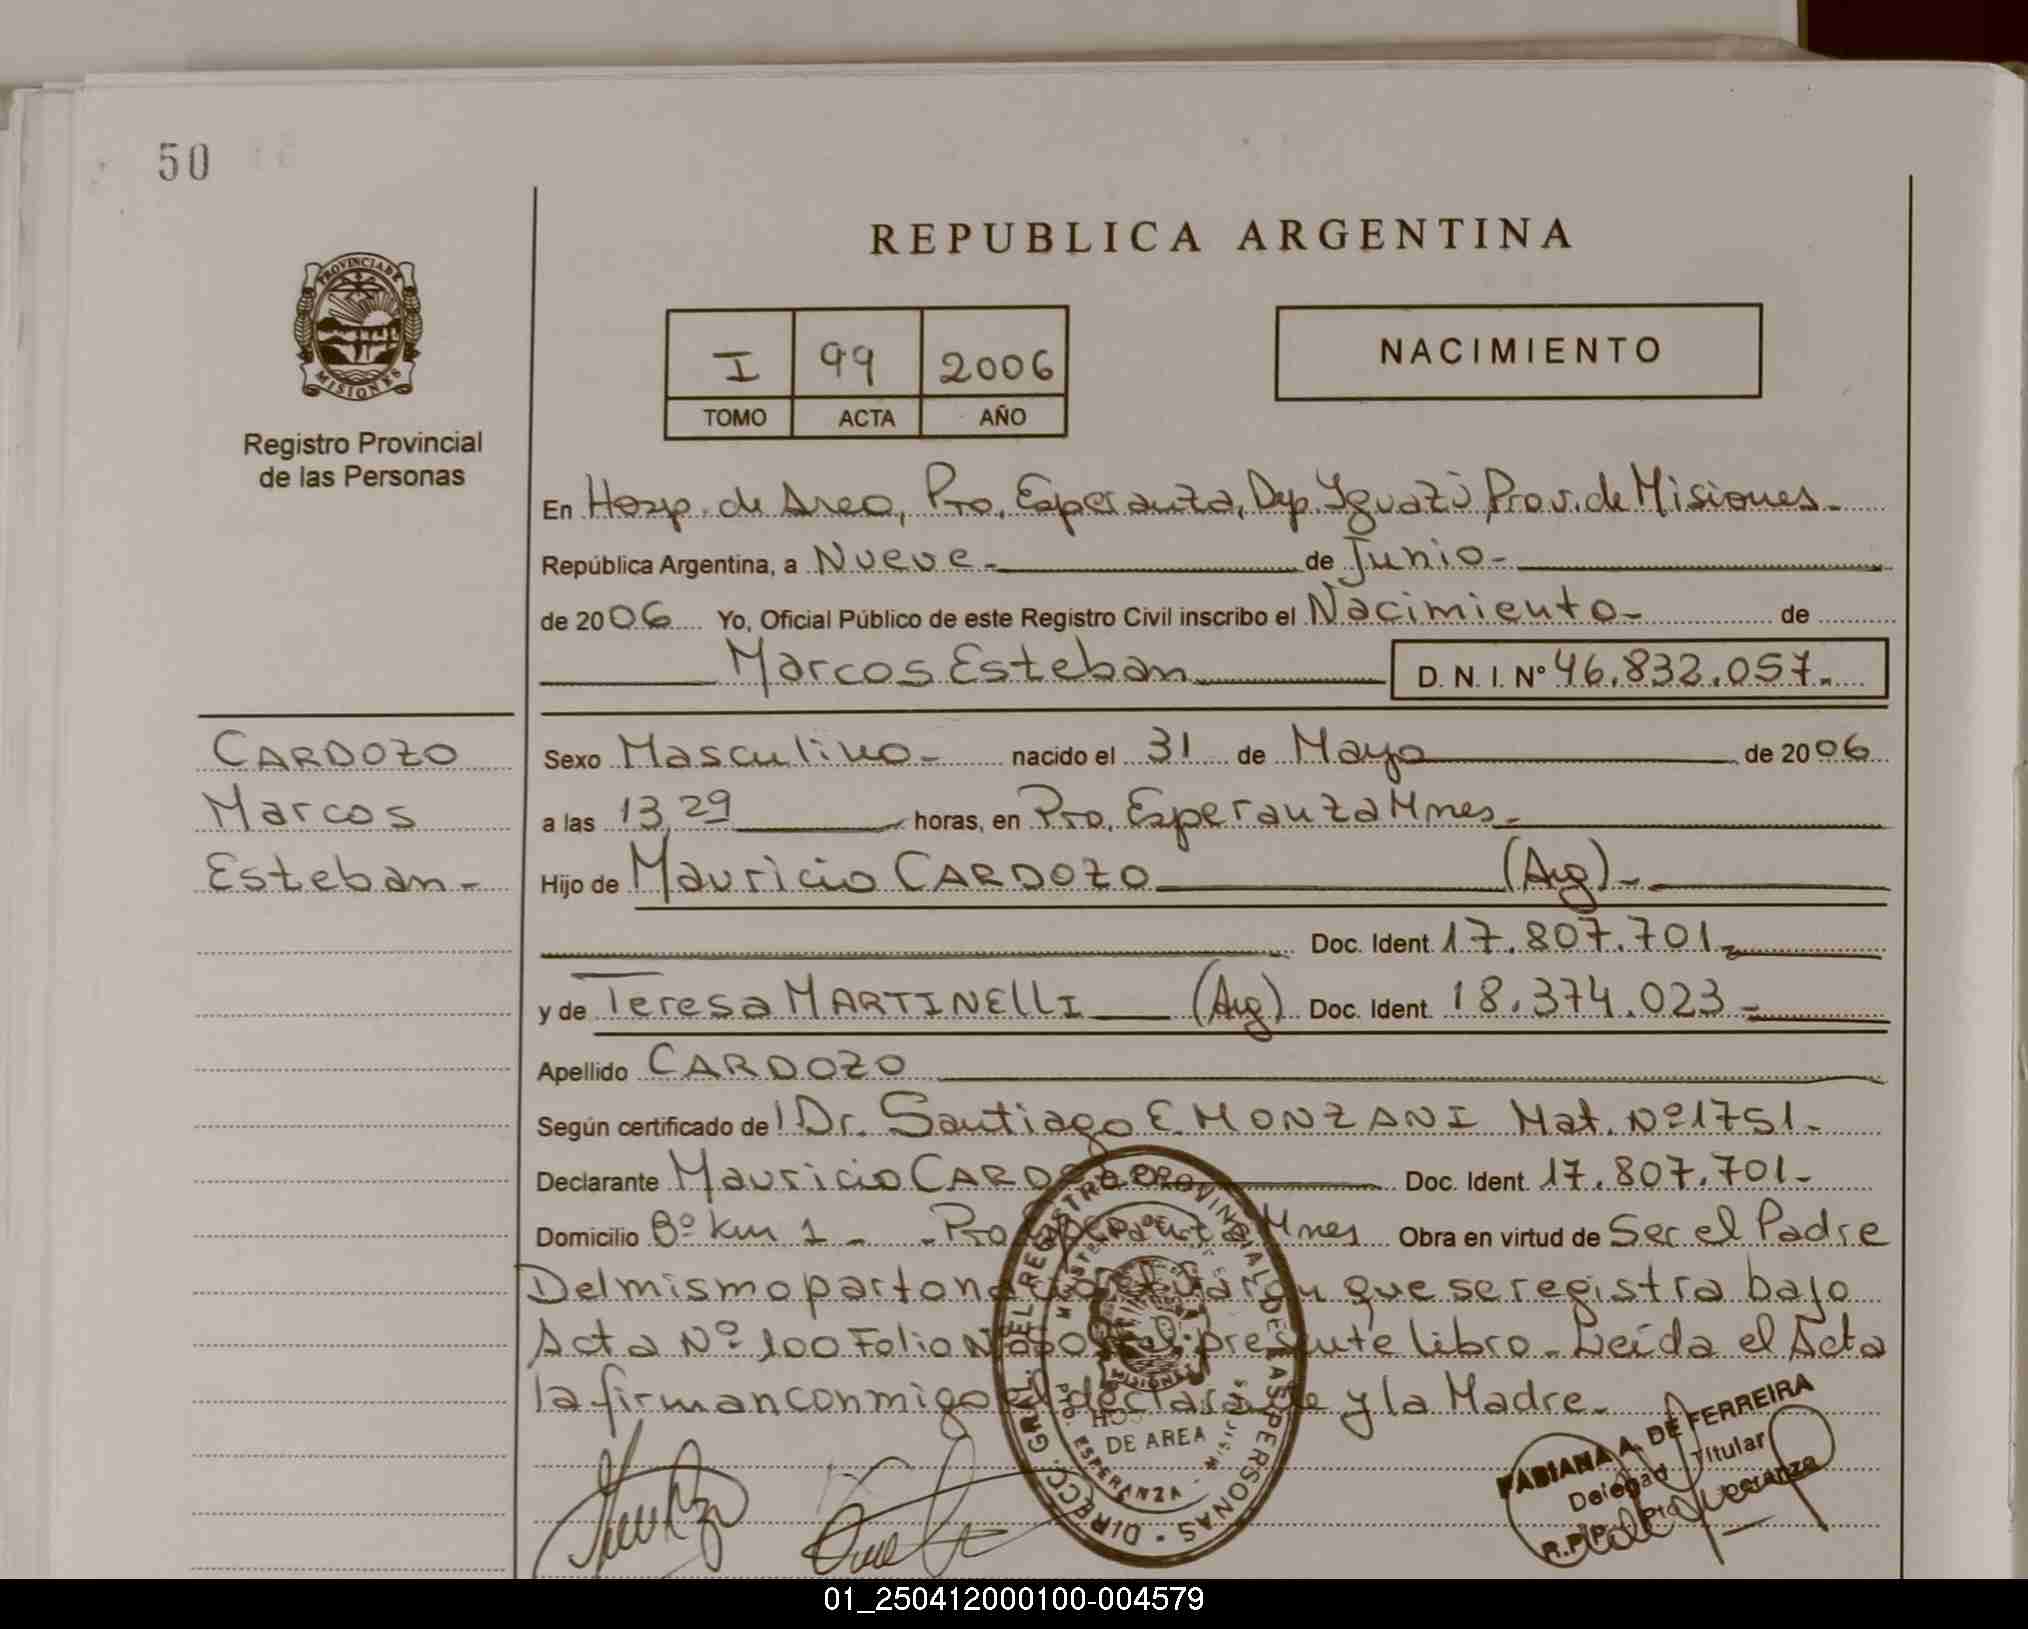 50
REPUBLICA ARGENTINA
PROVINCIA DE
MISIONES
Registro Provincial
de las Personas
I 99 2006
TOMO ACTA AÑO
NACIMIENTO
En Hosp. de Area, Pto. Esperanza, Dep. Iguazú Prov. de Misiones.
República Argentina, a Nueve de Junio
de 2006 Yo, Oficial Público de este Registro Civil inscribo el Nacimiento de
Marcos Esteban D. N. I. N° 46.832.057.
CARDOZO
Marcos
Esteban
Sexo Masculino nacido el 31 de Mayo de 2006
a las 13,29 horas, en Pto. Esperanza Mnes
Hijo de Mauricio CARDOZO (Arg)
Doc. Ident. 17.807.701
y de Teresa MARTINELLI (Arg) Doc. Ident. 18.374.023
Apellido CARDOZO
Según certificado de Dr. Santiago E. MONZANI Mat. Nº 1751
Declarante Mauricio CARDOZO Doc. Ident. 17.807.701
Domicilio Bº km 1 - Pto Esperanza Mnes Obra en virtud de Ser el Padre
Del mismo parto nació que se registra bajo
Acta Nº 100 Folio Nº 50 del presente libro - Leída el Acta
la firman conmigo el declarante y la Madre
DIRECC. GRAL. DEL REGISTRO PROVINCIAL DE LAS PERSONAS
MISIONES
DE AREA
PTO. ESPERANZA
FABIANA A. DE FERREIRA
Delegad Titular
R.P.P. Pto. Esperanza
01_250412000100-004579